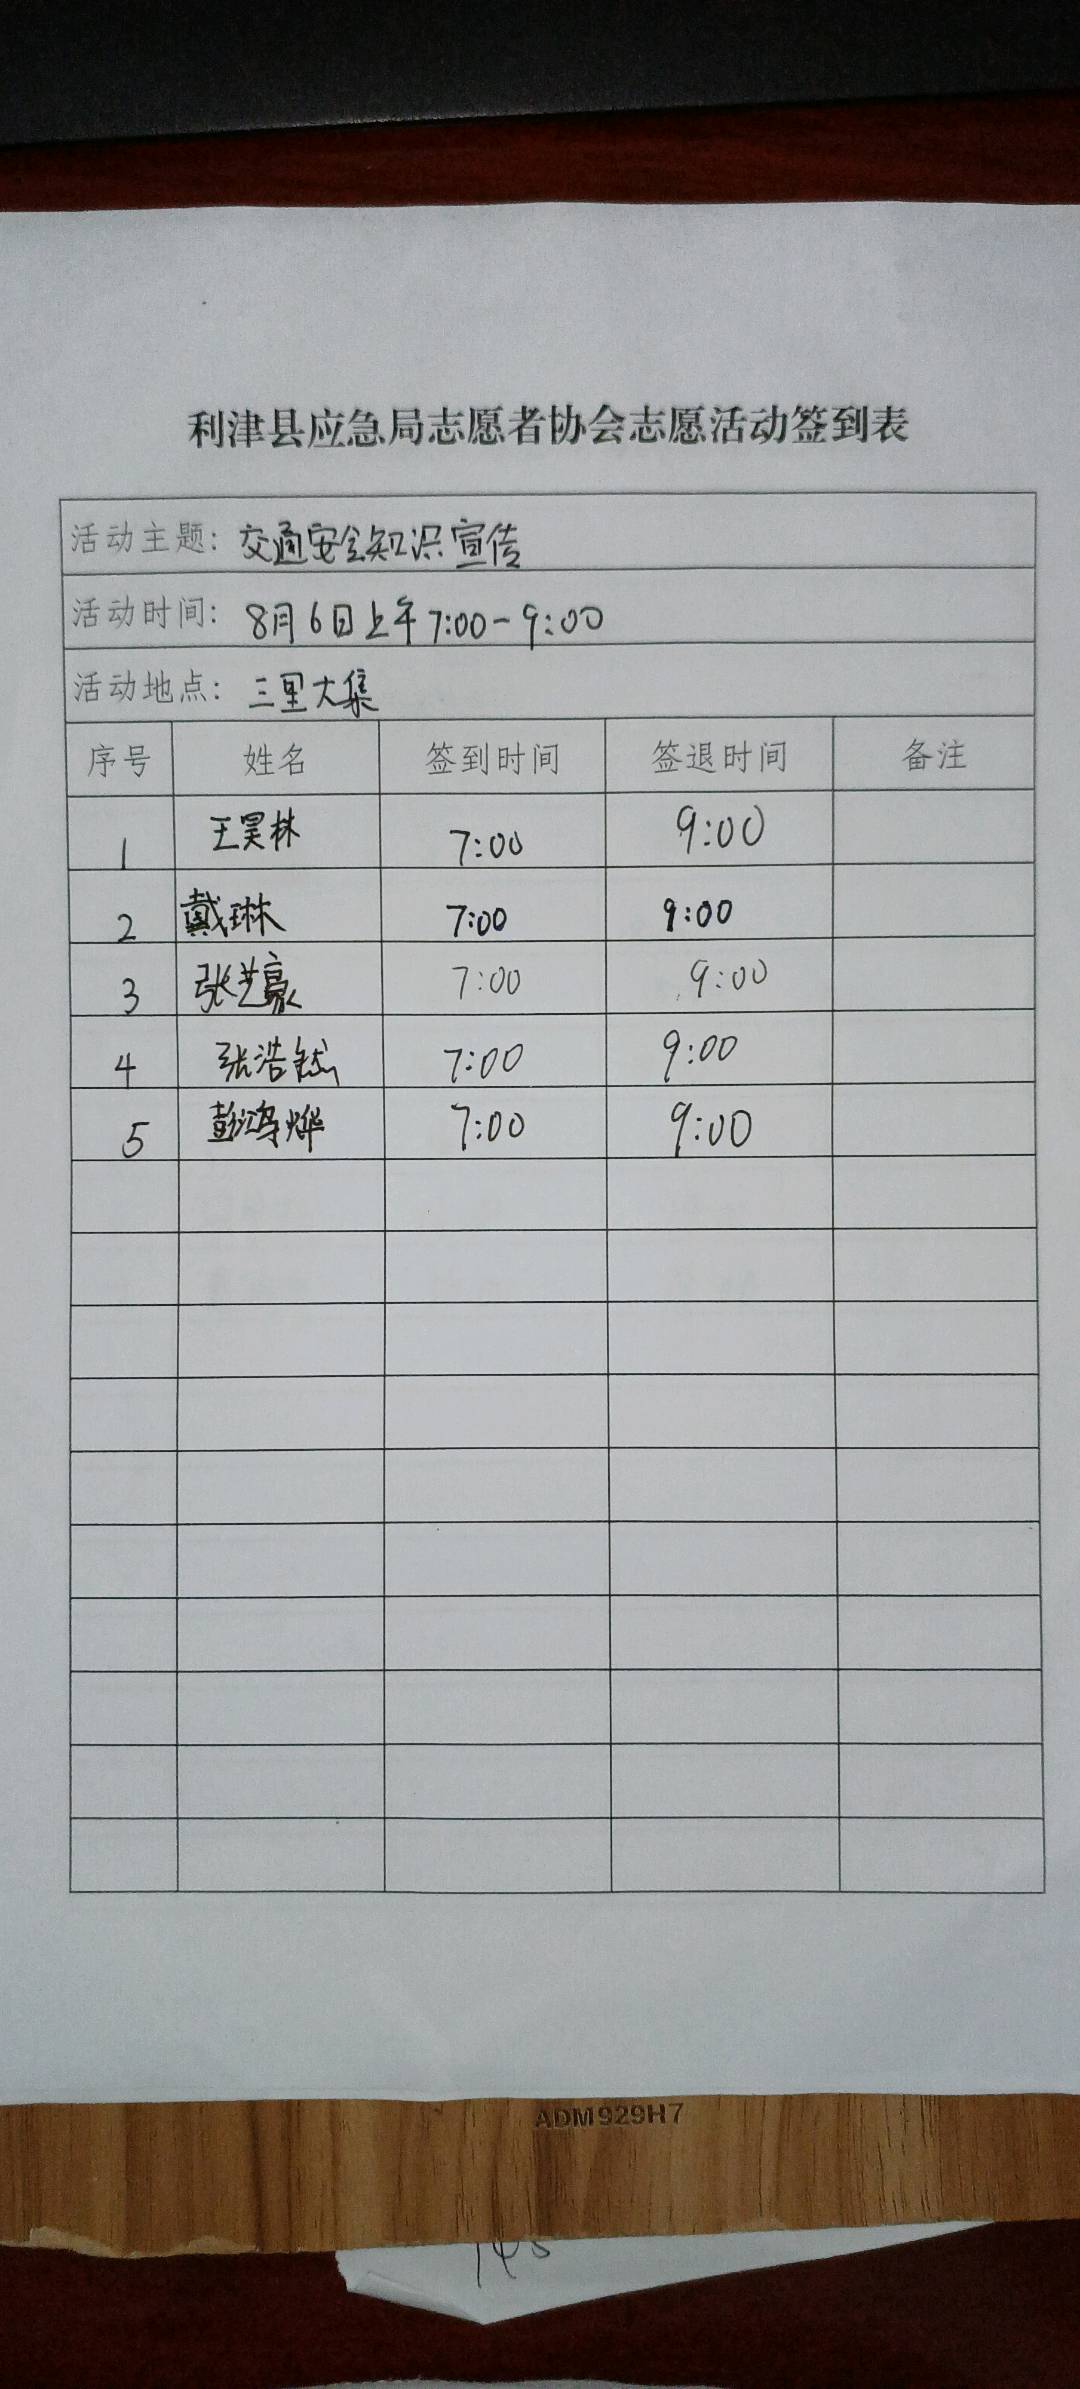 利津县应急局志愿者协会志愿活动签到表
活动主题: 交通安全知识宣传
活动时间: 8月6日上午7:00-9:00
活动地点: 三里大集
序号 姓名 签到时间 签退时间 备注
1 王昊林 7:00 9:00
2 戴琳 7:00 9:00
3 张艺豪 7:00 9:00
4 张浩然 7:00 9:00
5 彭鸿烨 7:00 9:00
ADM929H7